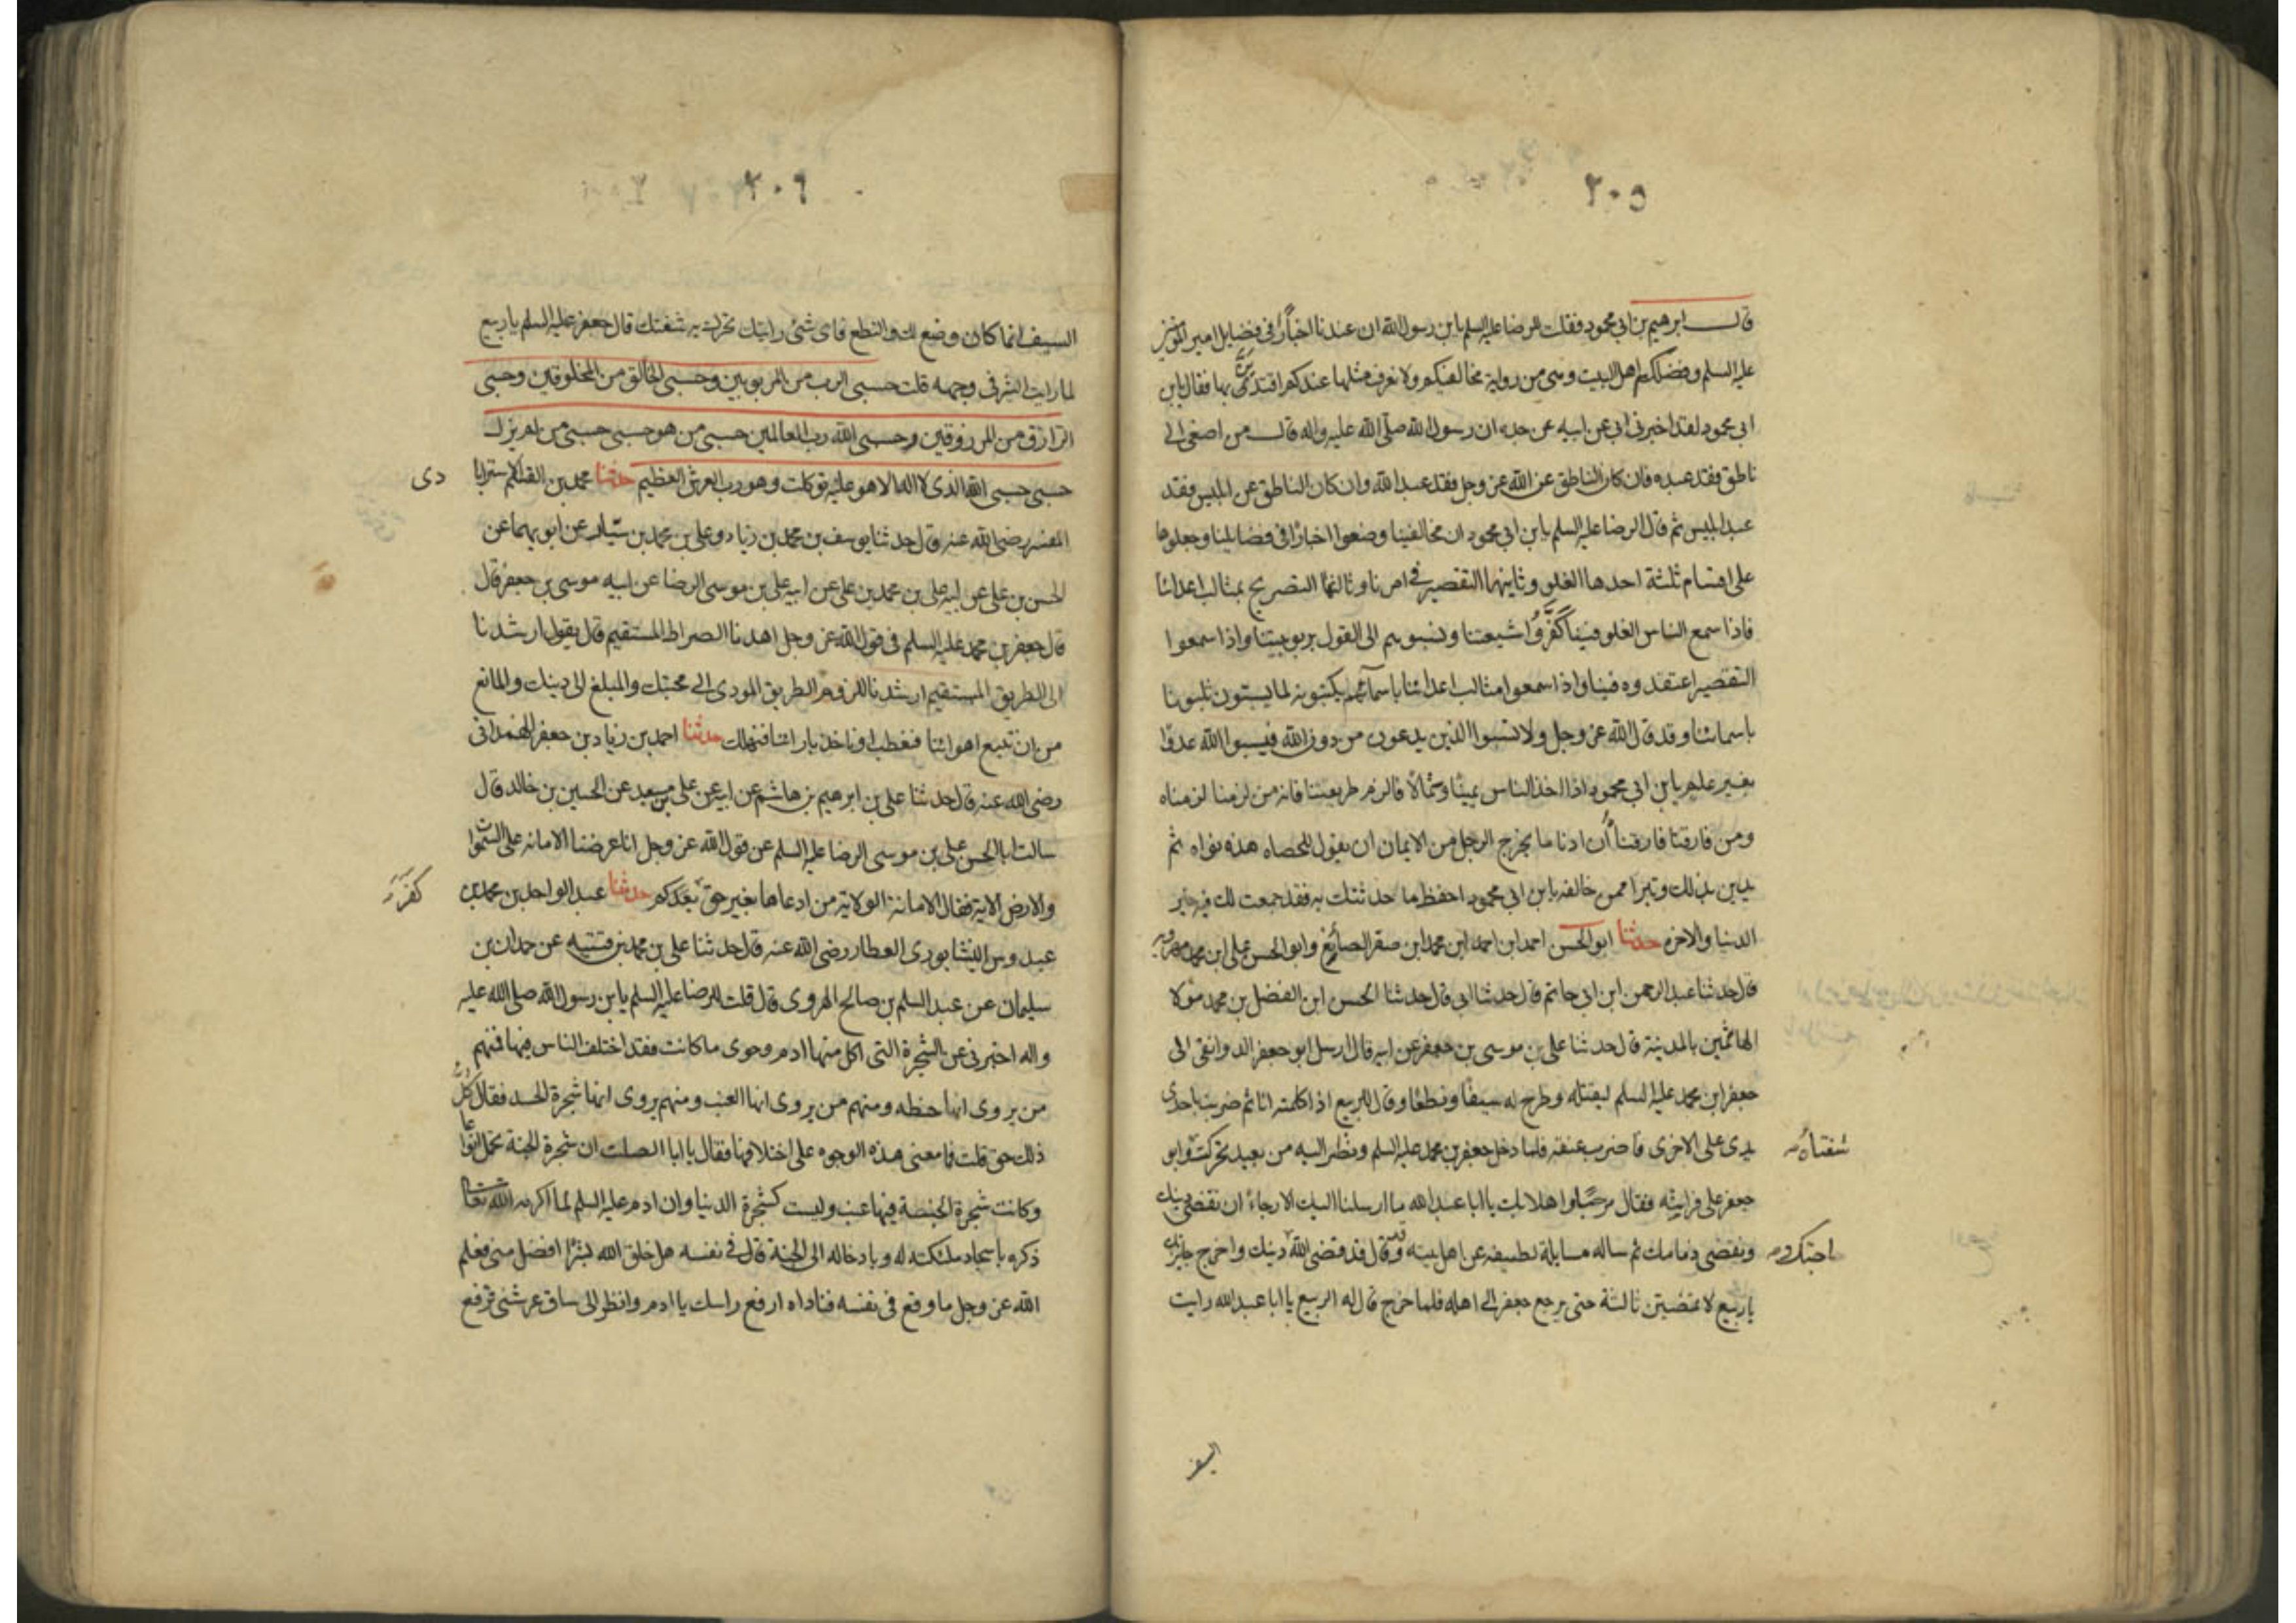 ٢٠٥
قال ابرهيم بن ابي محمود فقلت للرضا عليه السلم يا بن رسول الله ان عندنا اخبارًا في فضايل امير المؤمنين
عليه السلم وفضلكم اهل البيت وهي من رواية مخالفيكم ولا نعرف مثلها عندكم افتدين بها فقال يا بن
ابي محمود لقد اخبرني ابي عن ابيه عن جده ان رسول الله صلى الله عليه واله قال من اصغى الى
ناطق فقد عبده فان كان الناطق عن الله عز وجل فقد عبد الله وان كان الناطق عن ابليس فقد
عبد ابليس ثم قال الرضا عليه السلم يا بن ابي محمود ان مخالفينا وضعوا اخبارًا في فضايلنا وجعلوها
على اقسام ثلثة احدها الغلو وثانيهما التقصير في امرنا وثالثها التصريح بمثالب اعدائنا
فاذا سمع الناس الغلو فينا كفَّروا شيعتنا ونسبوهم الى القول بربوبيتنا واذا سمعوا
التقصير اعتقدوه فينا واذا سمعوا مثالب اعدائنا باسمائهم
باسمائنا وقد قال الله عز وجل ولا تسبوا الذين يدعون من دون الله فيسبوا الله عدوًا
بغير علم يا بن ابي محمود اذا اخذ الناس يمينًا وشمالًا فالزم طريقتنا فانه من لزمنا لزمناه
ومن فارقنا فارقناه ان ادنا ما يخرج الرجل من الايمان ان يقول للحصاه هذه نواه ثم
يدين بذلك وتبرا ممن خالفه يا بن ابي محمود احفظ ما حدثتك به فقد جمعت لك فيه خير
الدنيا والاخره حدثنا ابو الحسن احمد ابن احمد ابن محمد ابن صقر الصائغ وابو الحسن على ابن محمد مهرويه
قال حدثنا عبد الرحمن ابن ابي حاتم قال حدثنا ابي قال حدثنا الحسن ابن الفضل بن محمد مولا
الهاشمين بالمدينة قال حدثنا على بن موسى بن جعفر عن ابيه قال ارسل ابو جعفر الدوانقى الى
جعفر ابن محمد عليه السلم ليقتله وطرح له سيفًا ونطعًا وقال للربيع اذا كلمته انا ثم ضربت باحدى
يدي على الاخرى فاضرب عنقه فلما دخل جعفر بن محمد عليه السلم ونظر اليه من بعيد تحركت وابو
شفتاه
جعفر على فراشه فقال مرحبًا واهلا بك يا ابا عبد الله ما ارسلنا اليك الا رجاء ان نقضى دينك
ونقضى ذمامك ثم ساله مسايلة لطيفه عن اهل بيته وقال قد قضى الله دينك واخرج جايزتك
يا ربيع لا تمضين ثالثة حتى يرجع جعفر الى اهله فلما خرج قال له الربيع يا ابا عبد الله رايت
السيف
٢٠٦
السيف انما كان وضع لك والنطع فاى شئ رايتك تحرك به شفتيك قال جعفر عليه السلم يا ربيع
لما رايت الشر في وجهه قلت حسبى الرب من المربوبين وحسبى الخالق من المخلوقين وحسبى
الرازق من المرزوقين وحسبى الله رب العالمين حسبى من هو حسبى حسبى من لم يزل
حسبى حسبى الله الذى لا اله الا هو عليه توكلت وهو رب العرش العظيم حدثنا محمد بن القسم الاسترابا
دى
المفسر رضى الله عنه قال حدثنا يوسف بن محمد بن زياد وعلى بن محمد بن سيّار عن ابويهما عن
الحسن بن على عن ابيه على بن محمد بن على عن ابيه على بن موسى الرضا عن ابيه موسى بن جعفر قال
قال جعفر بن محمد عليه السلم في قول الله عز وجل اهدنا الصراط المستقيم قال يقول ارشدنا
الى الطريق المستقيم ارشدنا للزوم الطريق المودى الى محبتك والمبلغ الى دينك والمانع
من ان نتبع اهوائنا فنعطب او ناخذ بارائنا فنهلك حدثنا احمد بن زياد بن جعفر الهمدانى
رضى الله عنه قال حدثنا على بن ابرهيم بن هاشم عن ابيه عن على بن معبد عن الحسين بن خالد قال
سالت ابا الحسن على بن موسى الرضا عليه السلم عن قول الله عز وجل انا عرضنا الامانه على السموات
والارض الاية فقال الامانة الولاية من ادعاها بغير حق حدثنا عبد الواحد بن محمد بن
عبدوس النيشابورى العطار رضى الله عنه قال حدثنا على بن محمد بن قتيبه عن حمدان بن
سليمان عن عبد السلم بن صالح الهروى قال قلت للرضا عليه السلم يا بن رسول الله صلى الله عليه
واله اخبرنى عن الشجرة التى اكل منها ادم وحوى ما كانت فقد اختلف الناس فيها فمنهم
من يروى انها حنطه ومنهم من يروى انها العنب ومنهم يروى انها شجرة الحسد فقال كل
ذلك حق قلت فما معنى هذه الوجوه على اختلافها فقال يا ابا الصلت ان شجرة الجنة تحمل انواعا
وكانت شجرة الحنطة فيها عنب وليست كشجرة الدنيا وان ادم عليه السلم لما اكرمه الله تعالى
ذكره باسجاد ملئكته له وبادخاله الى الجنة قال في نفسه هل خلق الله بشرًا افضل منى فعلم
الله عز وجل ما وقع في نفسه فناداه ارفع راسك يا ادم وانظر الى ساق عرشى فرفع